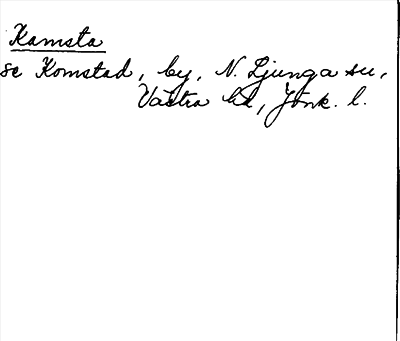 Kamsta
se Komstad, by, N. Ljunga sn,
Västra hd, Jönk. l.